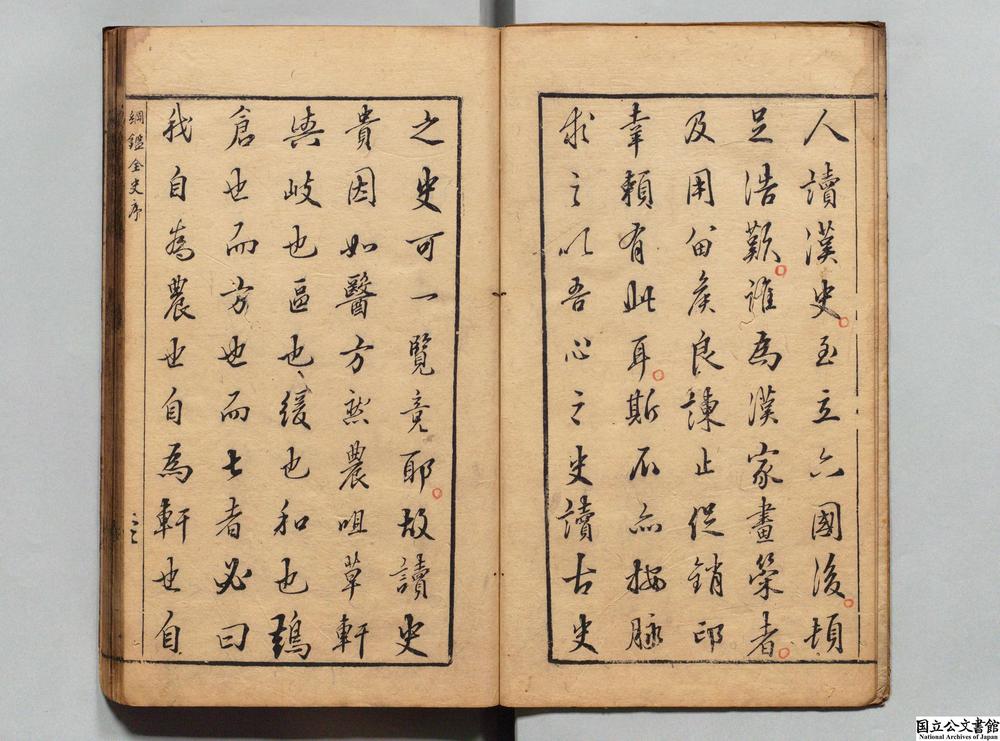 人讀漢史至立六國後頓
足浩歎誰爲漢家畫策者
及用留侯良諫止促銷印
幸賴有此耳斯不亦按脉
求之以吾心之史讀古史
之史可一覽竟耶故讀史
貴因如醫方然農咀草軒
與岐也區也緩也和也鶣
倉也而方也而七者必曰
我自爲農也自爲軒也自
綱鑑全史序
国立公文書館
National Archives of Japan